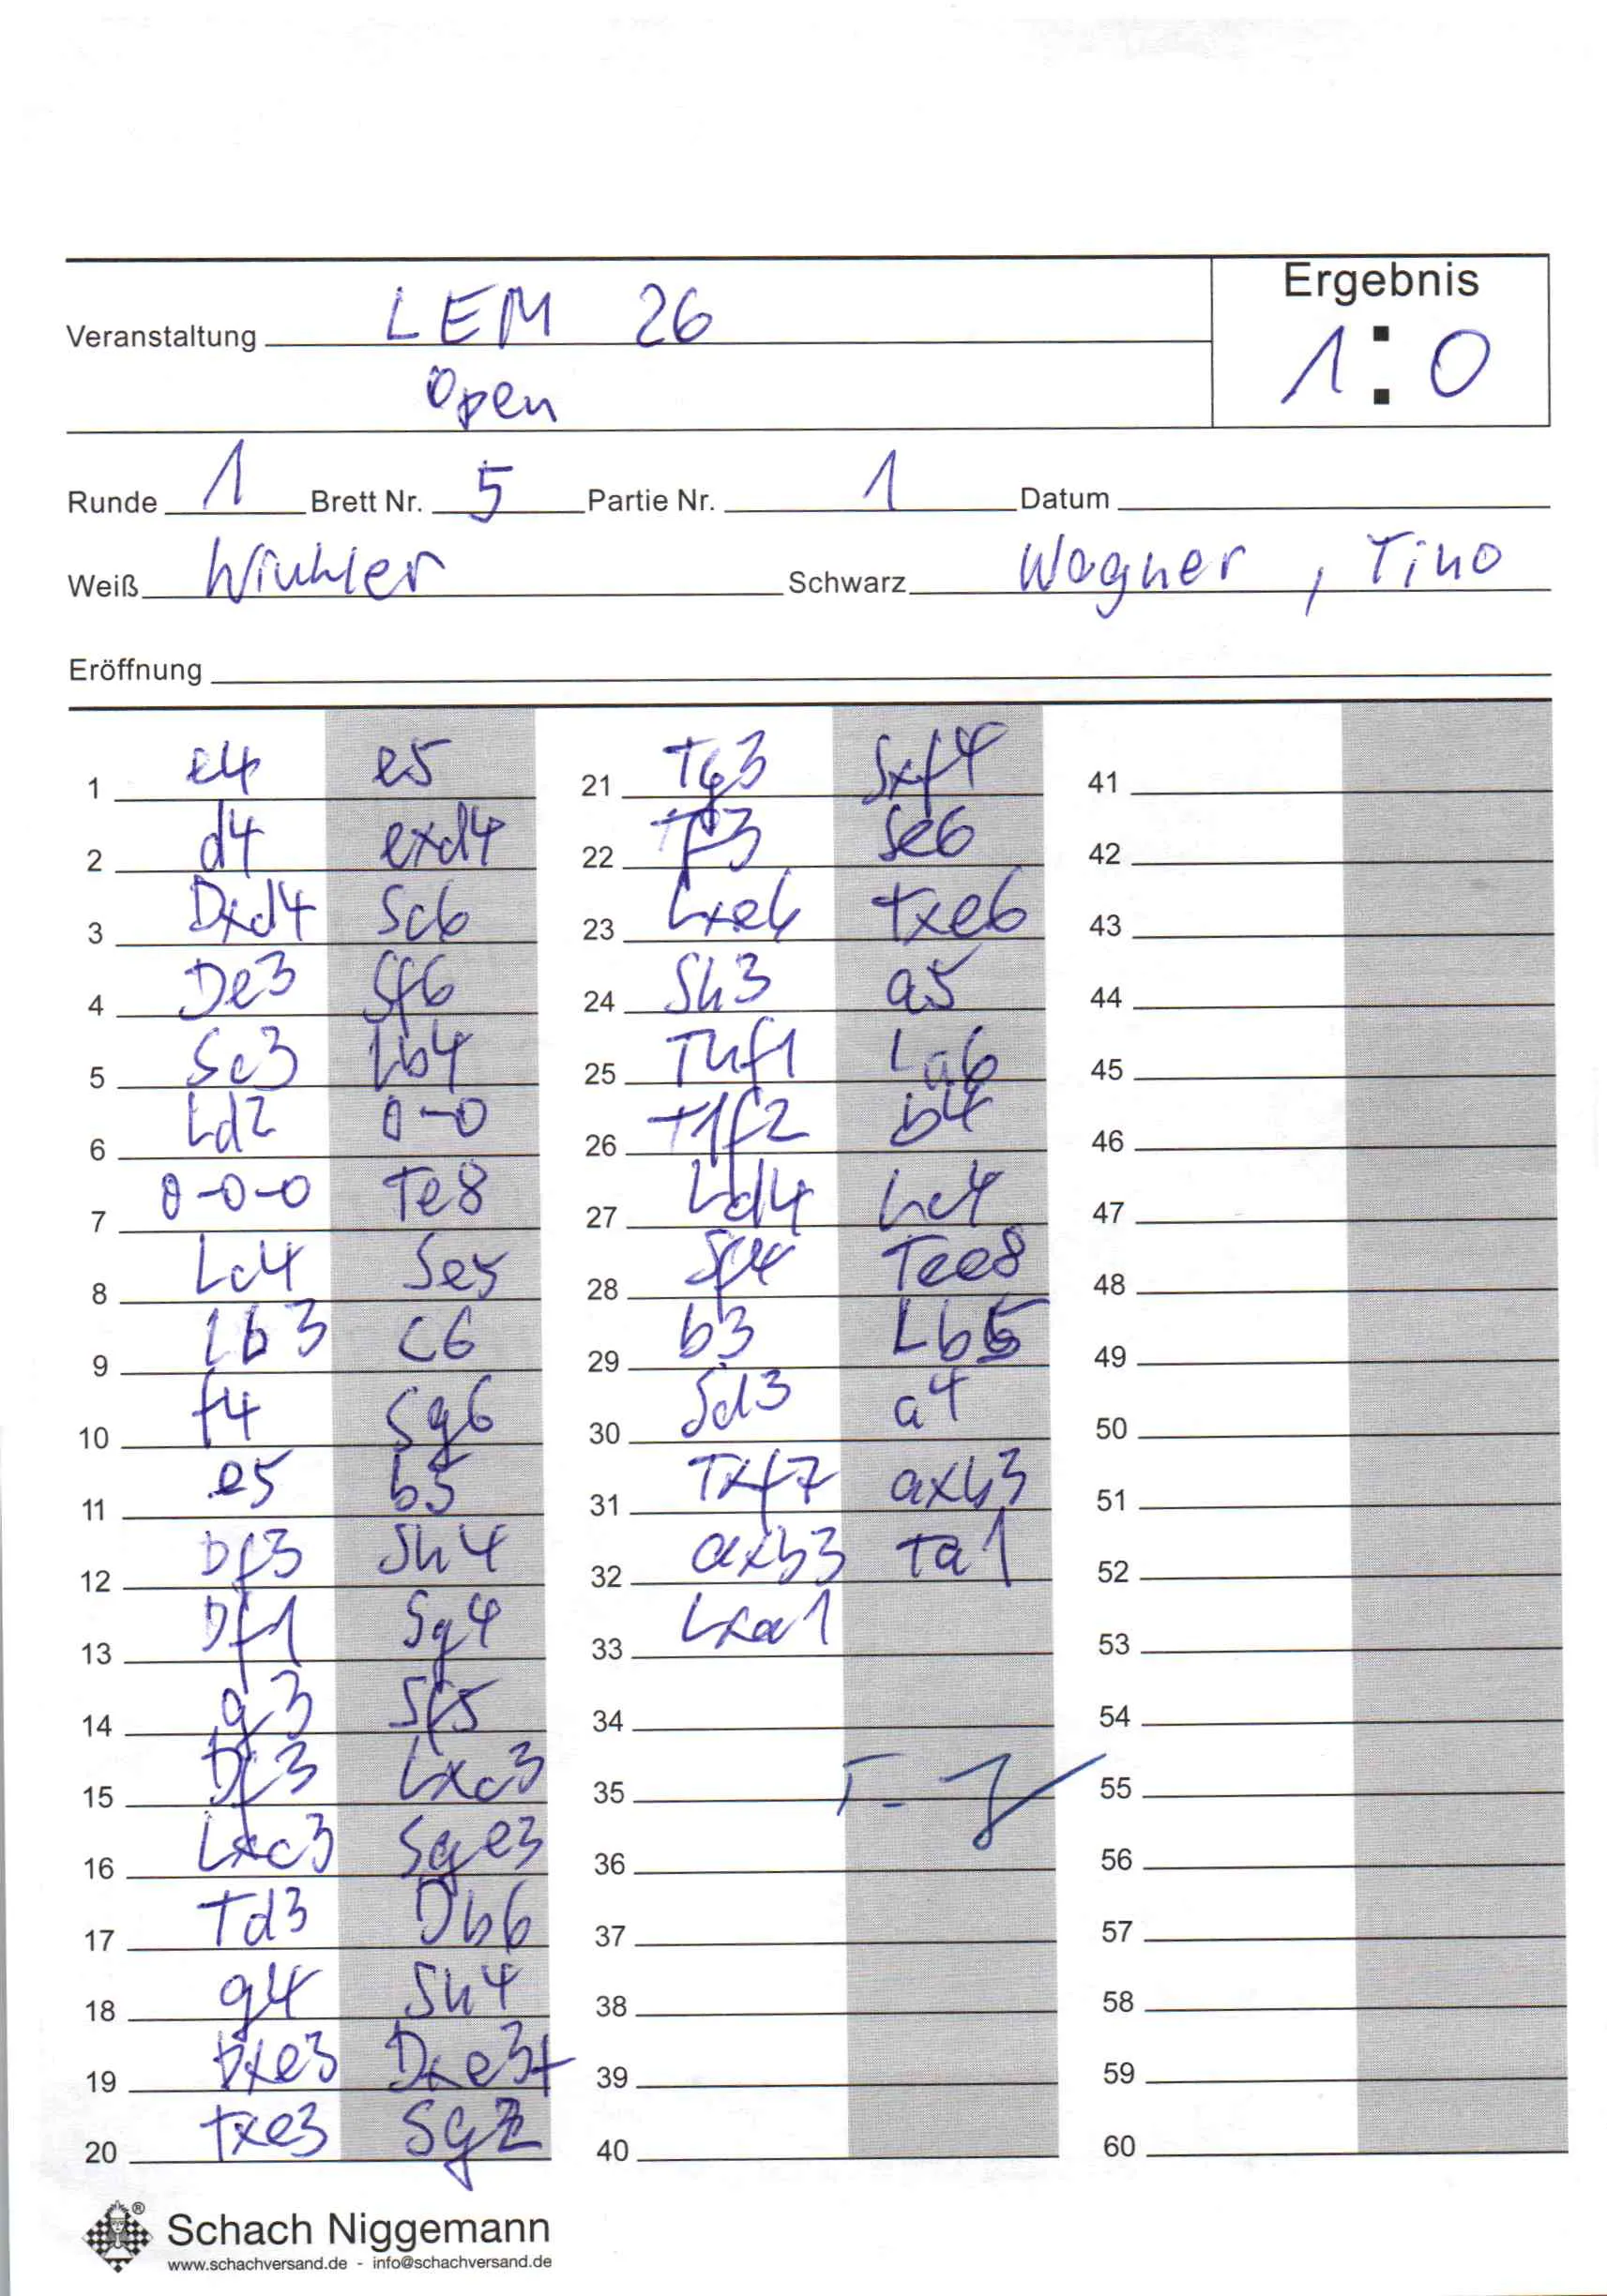 Ergebnis
Veranstaltung LEM 26
1:0
Open
Runde 1 Brett Nr. 5 Partie Nr. 1 Datum
Weiß Winkler Schwarz Wagner, Tino
Eröffnung
1 e4 e5
2 d4 exd4
3 Dxd4 Sc6
4 De3 Sf6
5 Sc3 Lb4
6 Ld2 0-0
7 0-0-0 Te8
8 Lc4 Se5
9 Lb3 c6
10 f4 Sg6
11 e5 b5
12 Df3 Sh4
13 Df1 Sg4
14 g3 Sf5
15 Df3 Lxc3
16 Lxc3 Sge3
17 Td3 Db6
18 g4 Sh4
19 Dxe3 Dxe3+
20 Txe3 Sg2
21 Tg3 Sxf4
22 Tf3 Se6
23 Lxe6 Txe6
24 Sh3 a5
25 Thf1 La6
26 T1f2 b4
27 Ld4 Lc4
28 Sf4 Tee8
29 b3 Lb5
30 Sd3 a4
31 Txf7 axb3
32 axb3 Ta1
33 Lxa1
34
35
36
37
38
39
40
41
42
43
44
45
46
47
48
49
50
51
52
53
54
55
56
57
58
59
60
Schach Niggemann
www.schachversand.de - info@schachversand.de